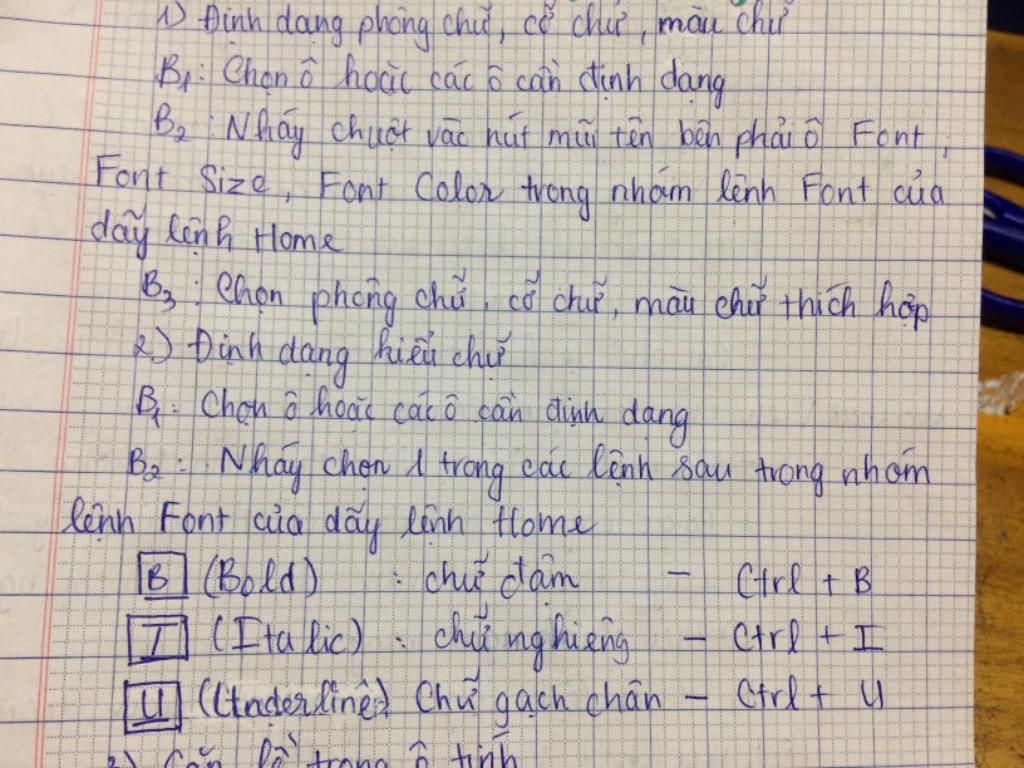 1) Định dạng phông chữ, cỡ chữ, màu chữ
B1: Chọn ô hoặc các ô cần định dạng
B2: Nháy chuột vào nút mũi tên bên phải ô Font,
Font Size, Font Color trong nhóm lệnh Font của
dãy lệnh Home
B3: Chọn phông chữ, cỡ chữ, màu chữ thích hợp
2) Định dạng kiểu chữ
B1: Chọn ô hoặc các ô cần định dạng
B2: Nháy chọn 1 trong các lệnh sau trong nhóm
lệnh Font của dãy lệnh Home
B (Bold) : chữ đậm - Ctrl + B
I (Italic) : chữ nghiêng - Ctrl + I
U (Underline) Chữ gạch chân - Ctrl + U
3) Căn lề trong ô tính